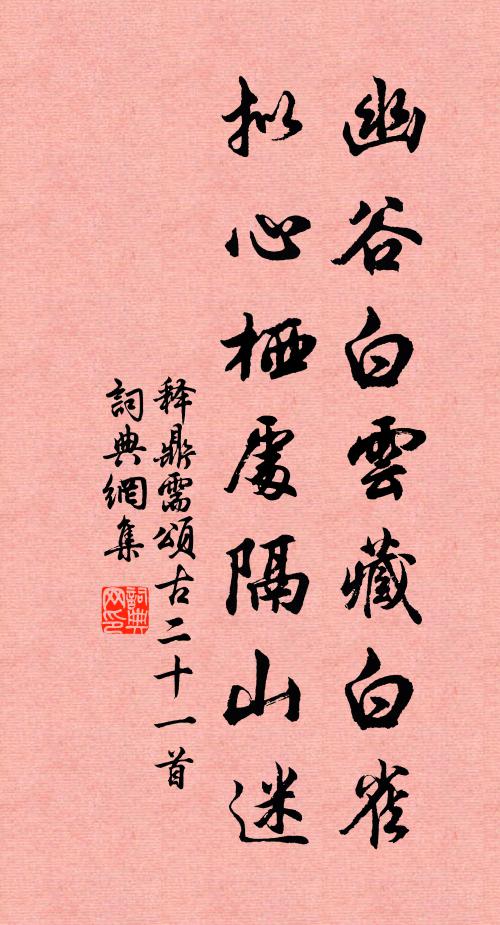 幽谷白雲藏白雀
拟心栖處隔山迷
释鼎需頌古二十一首
詞典網集
詞典
网印